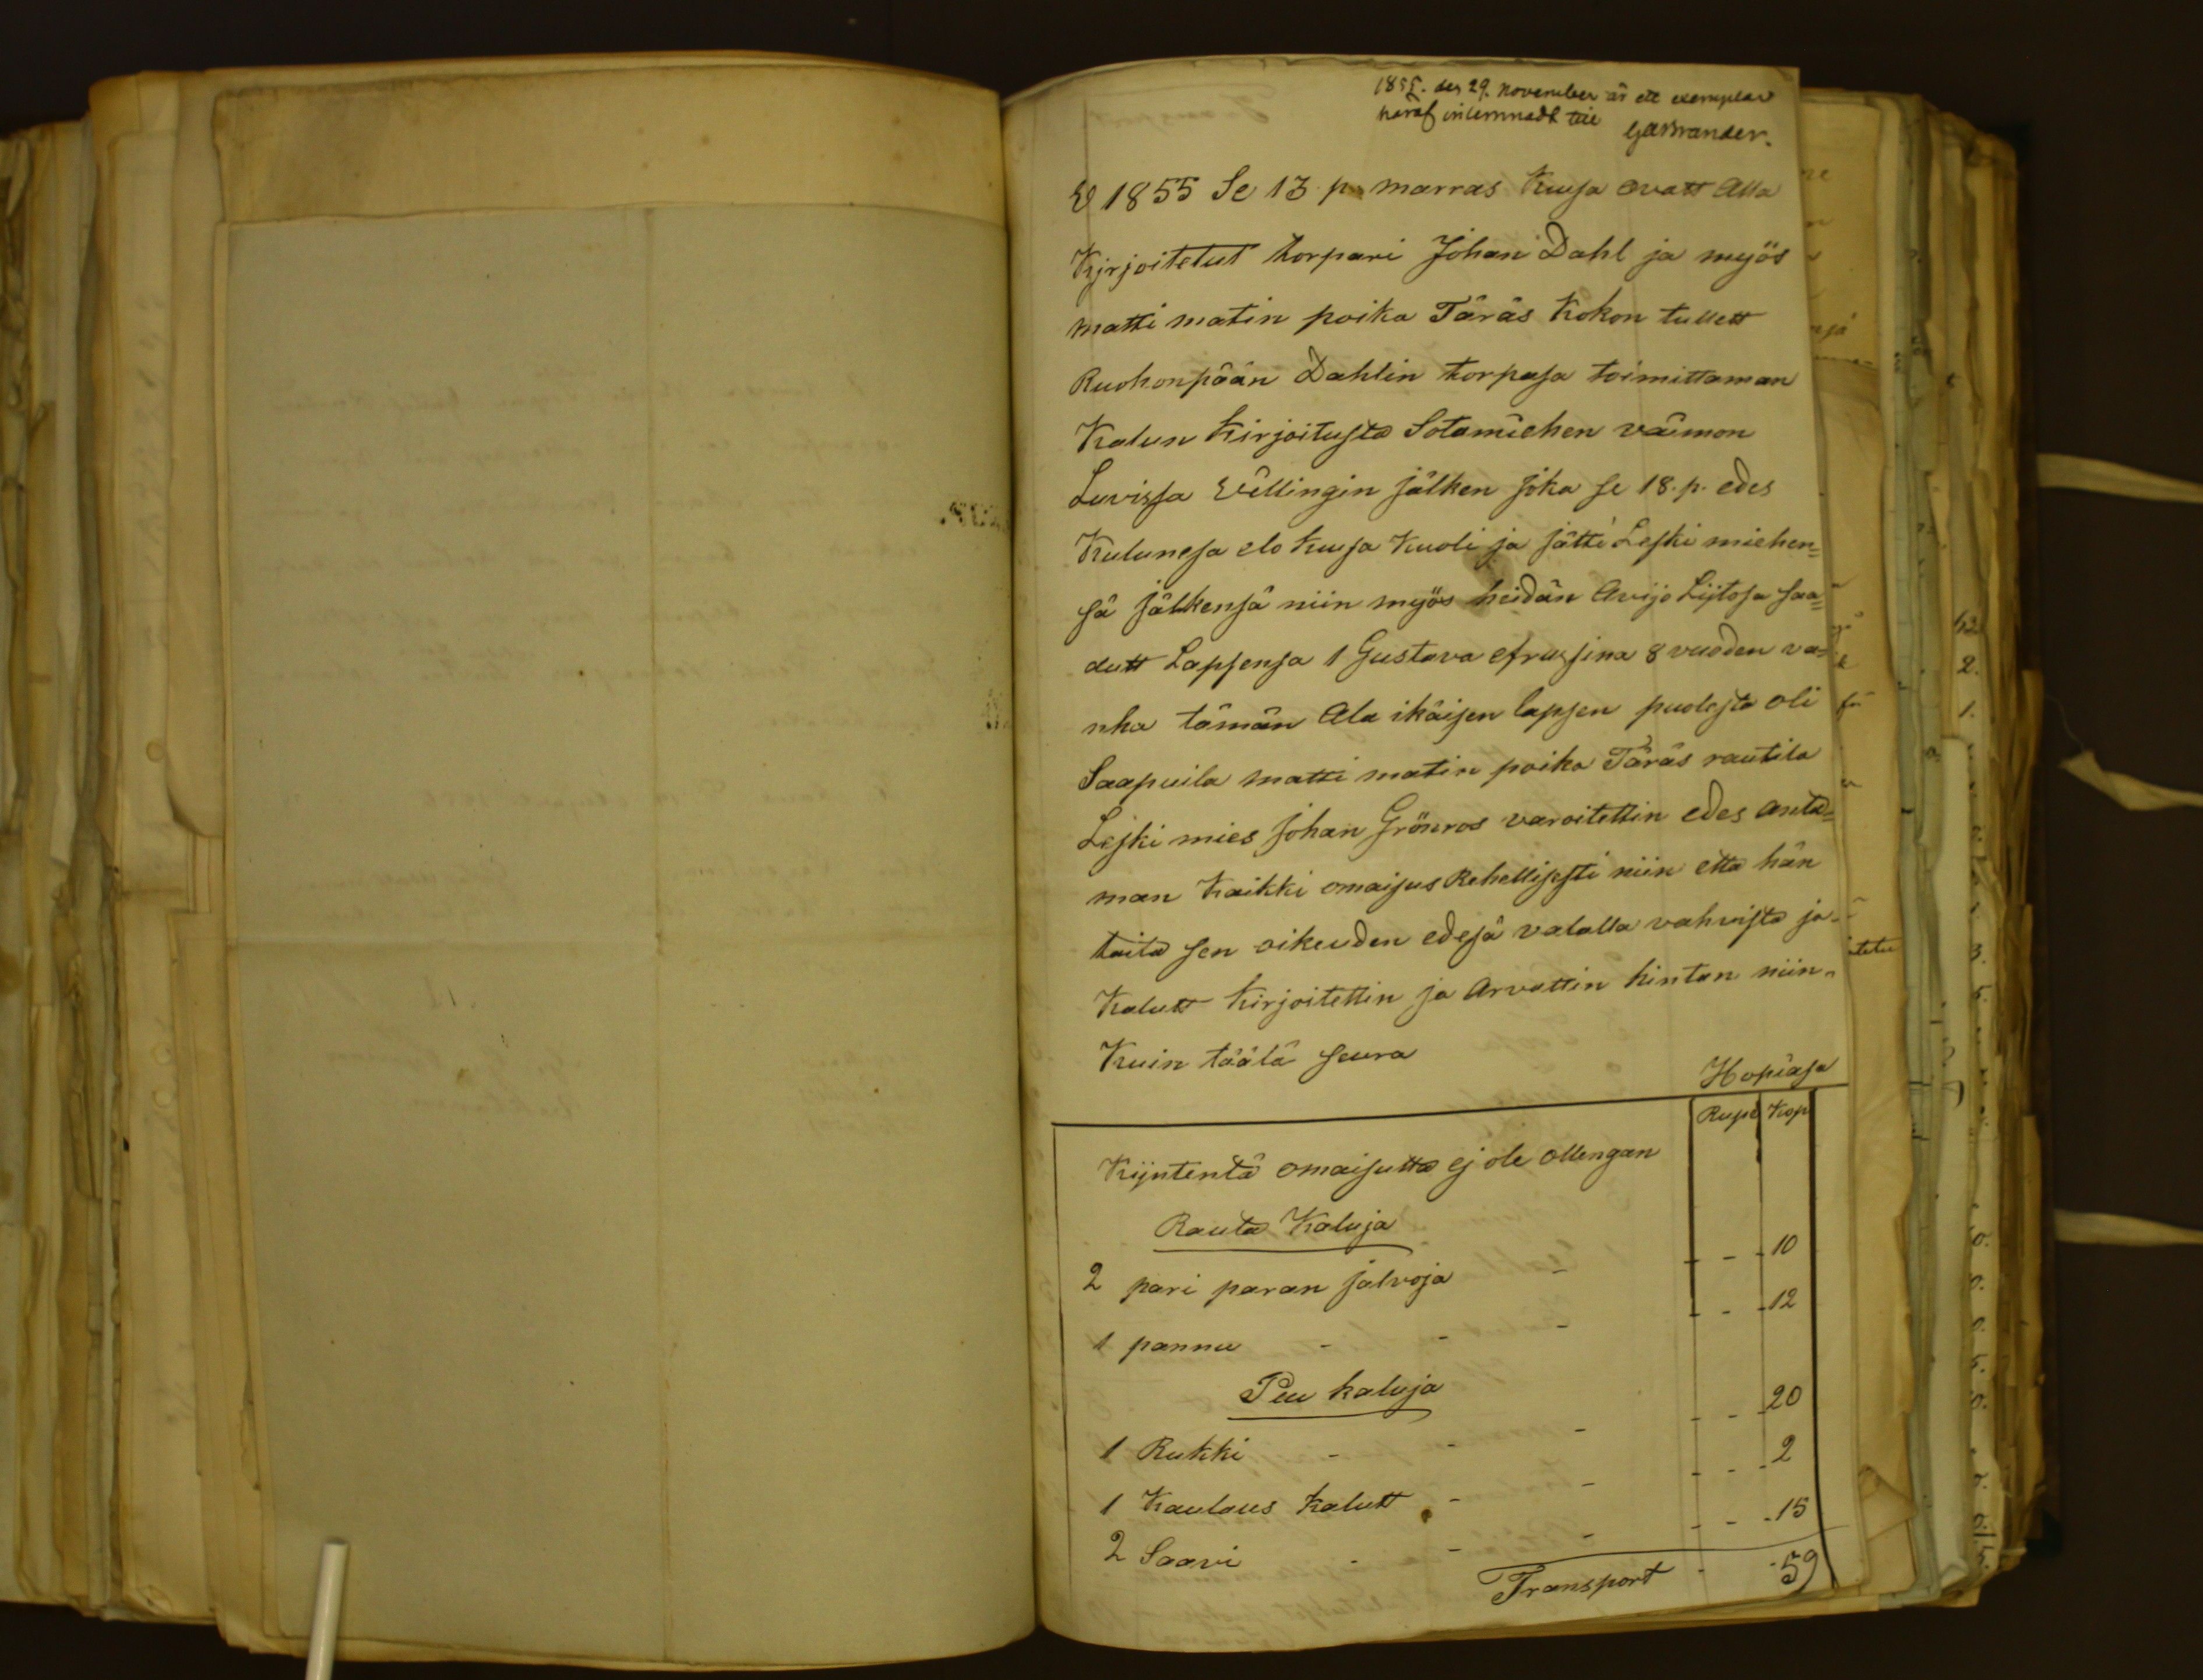 1855. den 29. November är ett exemplar
häraf inlemnadt till
GABrander.
V 1855 Se 13 p marras Kuusa ovatt Alla
Kirjoitetut torpari Johan Dahl ja myös
matti matin poika Täräs Kokon tullett
Ruohonpään Dahlin torpasa toimittaman
Kalun Kirjoitusta Sotamiehen vaimon
Lovissa Vällingin jälken joka se 18. p. edes
Kulunesa elo kuusa Kuoli ja jätti Leski miehen=
sä jälkensä niin myös heidän Avijo Lijtosa saa=
dutt Lapsensa 1 Gustava efrusina 8 vuoden va=
nha tämän Ala ikäisen lapsen puolesta oli
Saapuila matti matin poika Täräs rautila
Leski mies Johan Grönros varoitettin edes anta=
man Kaikki omaisus Rehellisesti niin etta hän
taita sen oikeuden edesä valalla vahvista ja
Kalutt Kirjoitettin ja Arvattin hintan niin
Kuin täälä seura
Hopiasa
Rupl Kop
Kijntentä omaisutta ej ole ollengan
Rauta Kaluja
2 pari paran jalvoja - - - 10
1 pannu - - - - - 12
Puu kaluja
1 Rukki - - - - - 20
1 Kaulaus Kalutt - - - - 2
2 Saavi - - - - - 15
Transport - - 59